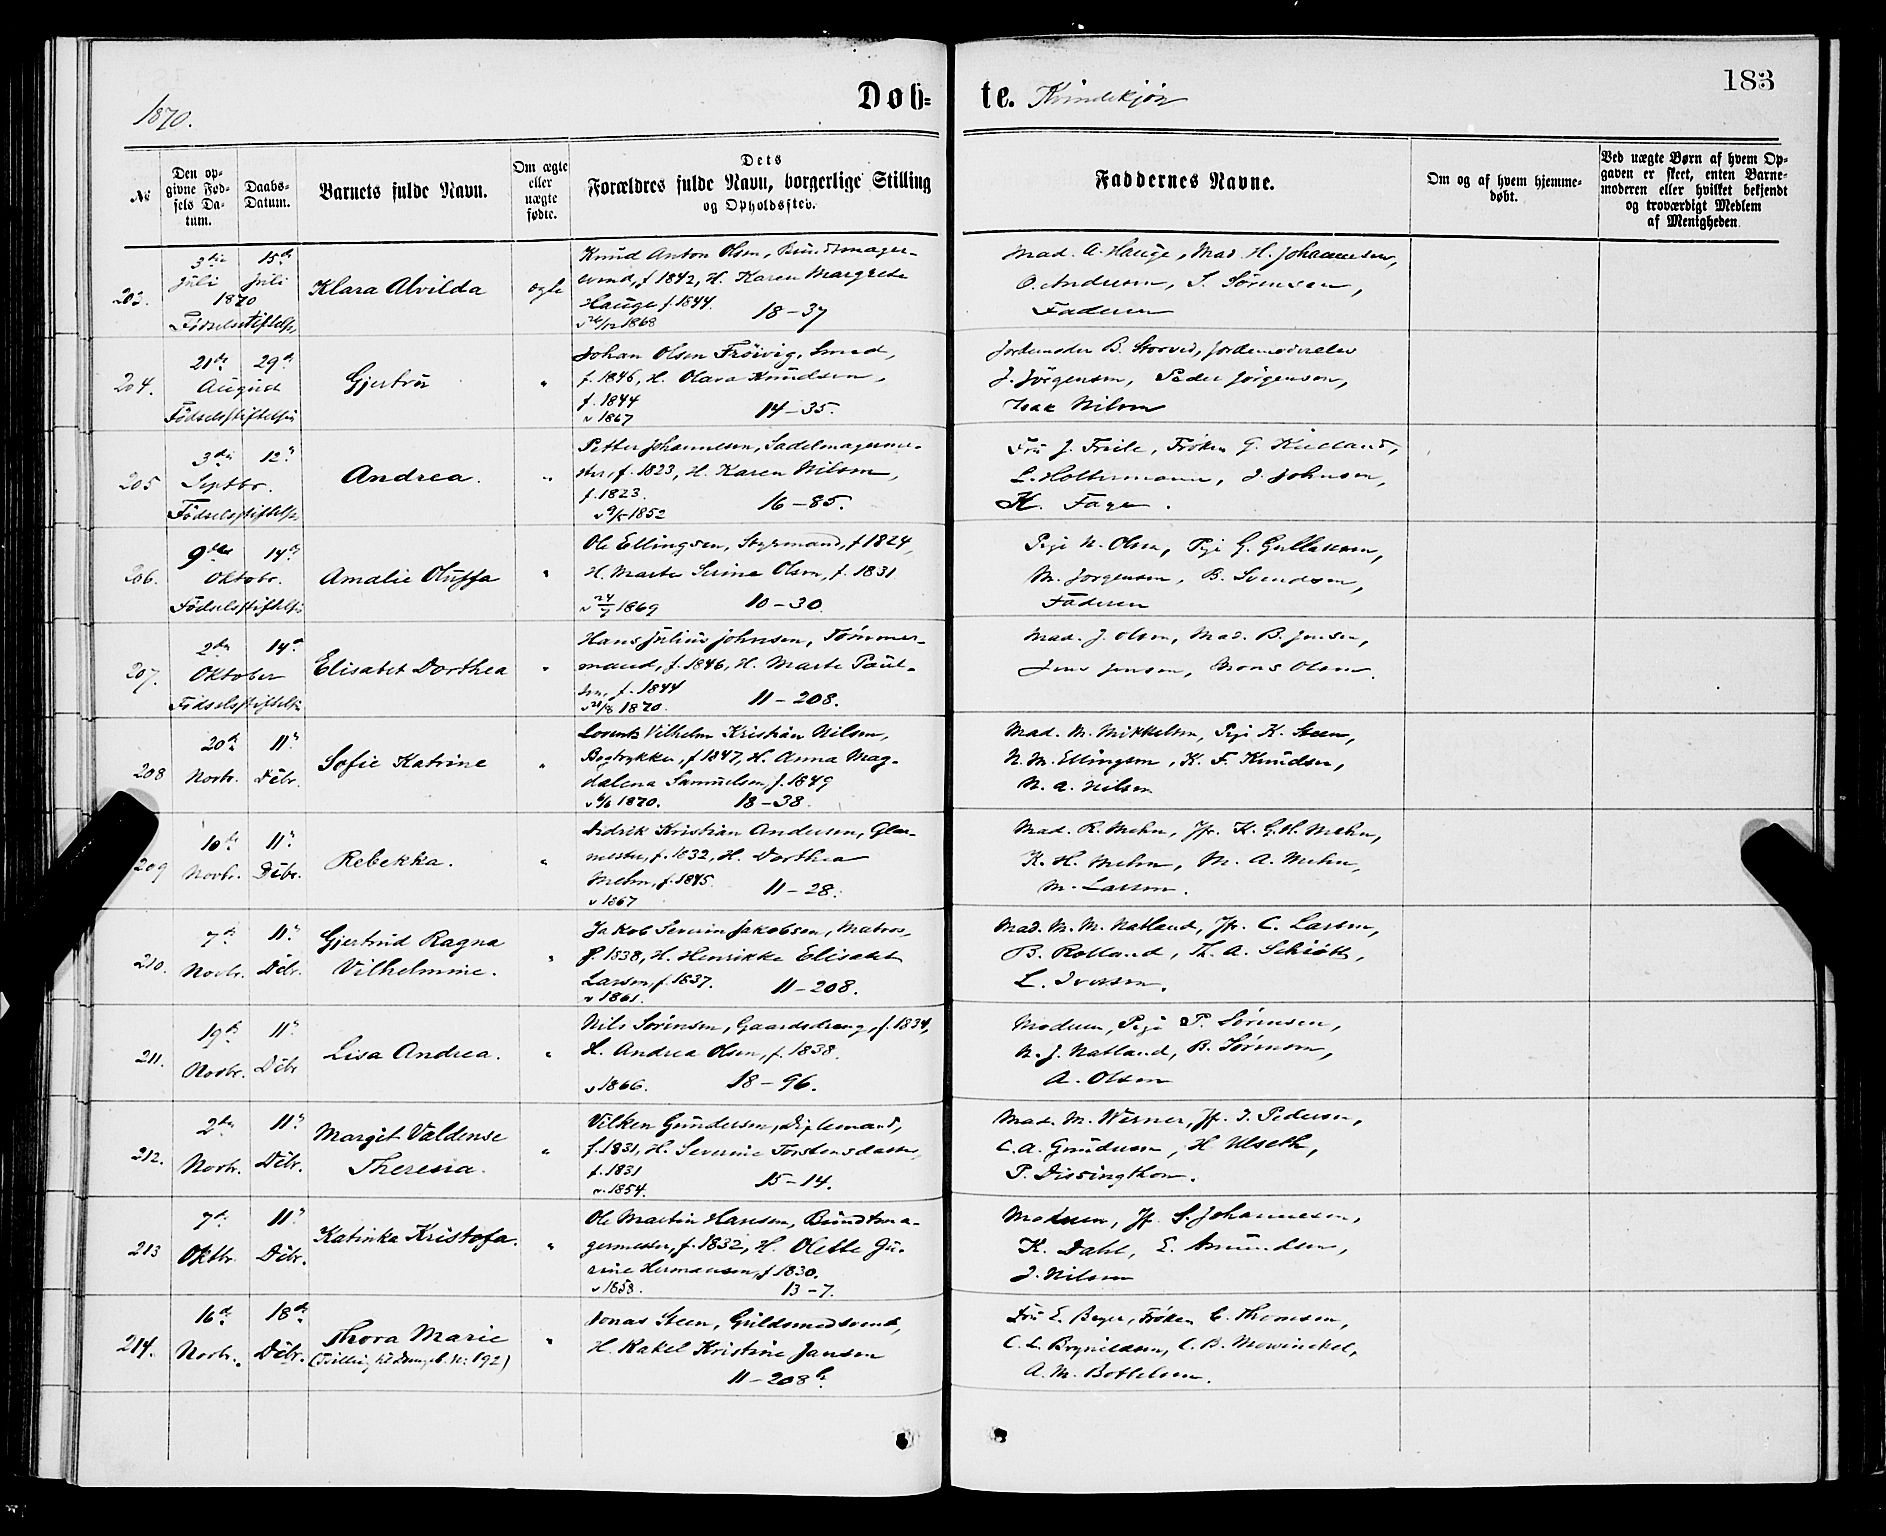 1870.
Døb-
te. Kvindekjøn
183
No
Den op-
givne Fød-
sels Da-
tum.
Daabs-
Datum.
Barnets fulde Navn.
Om ægte
eller
uægte
fødte.
Dets
Forældres fulde Navn, borgerlige Stilling
og Opholdssted.
Faddernes Navne.
Om og af hvem hjemme-
døbt.
Ved uægte Børn af hvem Op-
gaven er skeet, enten Barne-
moderen eller hvilket bekjendt
og troværdigt Medlem
af Menigheden.
203.
3die 15de
Juli Juli
1870
Fødselsstiftelse
Klara Alvilda
ægte
Knud Anton Olsen, Bundtmager-
svend, f 1842, H. Karen Margrete
Hauge f 1844.
1868 18-37
Mad. A. Hauge, Mad. H. Johannesen,
O. Andersen, S. Sørensen,
Faderen
204.
21de 29de
August
Fødselsstiftelsen
Gjertrud
"
Johan Olsen Frøivig, Smed,
f. 1846, H. Olava Knudsen,
f. 1844
v 1867 14-35.
Jordemoder B. Storvid, Jordemoderelev
J. Jørgensen, Peder Jørgensen,
Isak Nilsen
205
3die 12te
Septbr.
Fødselsstiftelse
Andrea.
"
Petter Johannesen, Sadelmagerme-
ster, f. 1823, H. Karen Nilsen,
f. 1823.
1852 16-85.
Fru J. Friele, Frøken G. Kielland,
L. Holtermann, J. Johnsen,
K. Faye.
206.
9de 14de
Oktobr.
Fødselsstiftelse
Amalie Oluffa
"
Ole Ellingsen, Styrmand, f 1824,
H. Marte Serine Olsen, f. 1831
v 24/7 1869 10-30.
Pige N. Olsen, Pige G. Gullaksen,
M. Jørgensen, B. Svendsen,
Faderen
207.
2den 14de
Oktober
Fødselsstiftelse
Elisabet Dorthea
"
Hans Julius Johnsen, Tømmer-
mand, f. 1846, H. Marte Paul-
sen, f. 1844
1870. 11-208.
Mad. J. Olsen, Mad. B. Jensen,
Jens Jensen, Mons Olsen.
208
20de 11te
Novbr. Dcbr.
Sofie Katrine
"
Lorents Vilhelm Kristian Nilsen,
Bogtrykker, f 1847, H. Anna Mag-
dalena Samuelsen, f. 1849
1870. 18-38.
Mad. M. Mikkelsen, Pige K. Steen,
N. M. Ellingsen, K. F. Knudsen,
N. A. Nilsen
209
10de 11te
Novbr. Dcbr.
Rebekka.
"
Didrik Kristian Andersen, Glar-
mester, f. 1832, H. Dorthea
Mehn, f. 1845.
v 1867 11-28.
Mad. R. Mehn, Jfr. K. G. H. Mehn,
K. H. Mehn, M. A. Mehn,
M. Larsen.
210.
7de 11te
Novbr. Dcbr.
Gjertrud Ragna
Vilhelmine.
"
Jakob Severin Jakobsen, Matros,
f. 1838, H. Henrikke Elisabet
Larsen, f. 1837.
v 1861. 11-208.
Mad. M. M. Natland, Jfr. C. Larsen,
B. Rolland, Th. A. Schiøtt,
L. Iversen.
211.
19de 11te
Novbr. Dcbr
Lisa Andrea.
"
Nils Sørensen, Gaardsdreng, f. 1834,
H. Andrea Olsen, f. 1838.
v 1866. 18-96.
Moderen, Pige P. Sørensen,
N. J. Natland, B. Sørensen,
A. Olsen
212.
2den 11te
Novbr. Dcbr.
Margit Valdense
Theresia.
"
Vilken Gundersen, Diplemand,
f. 1831, H. Severine Torstensdatter,
f. 1831
v. 1854. 15-14.
Mad. M. Werner, Jfr. J. Pedersen,
C. A. Gundersen, H. Ulseth,
P. Dissingthon.
213
7de 11te
Oktbr. Dcbr.
Katinka Kristofa.
"
Ole Martin Hansen, Bundtma-
germester, f. 1832, H. Olette Gu-
rine Hermansen, f 1830.
v 1858. 13-7.
Moderen, Jfr. S. Johannesen,
K. Dahl, E. Amundsen,
J. Nilsen
214.
16de 18de
Novbr. Dcbr.
Thora Marie
(Tvilling til Drengeb. N: 192)
"
Jonas Steen, Guldsmedsvend,
H. Rakel Kristine Jansen
11-208b.
Fru E. Beyer, Frøken C. Thomsen,
C. L. Brynildsen, C. B. Mowinckel,
A. M. Bottelsen.